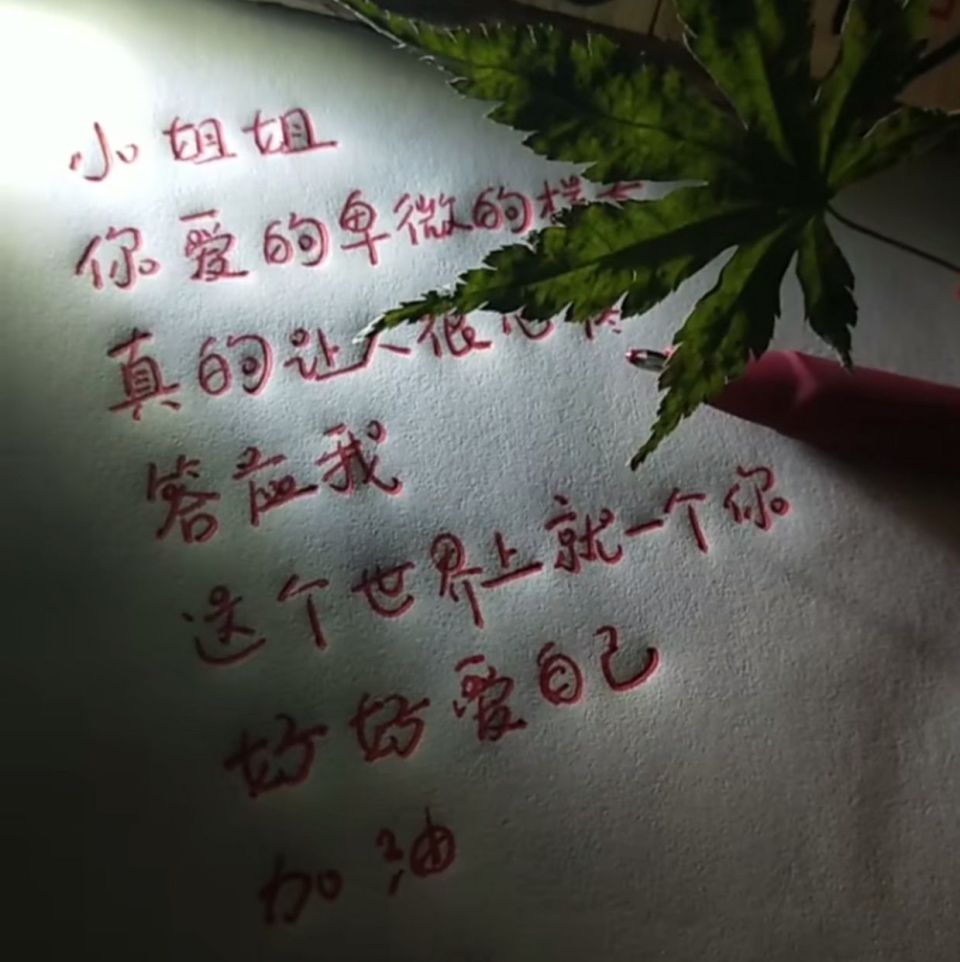 小姐姐
你爱的卑微的样
真的让人很心疼
答应我
这个世界上就一个你
好好爱自己
加油